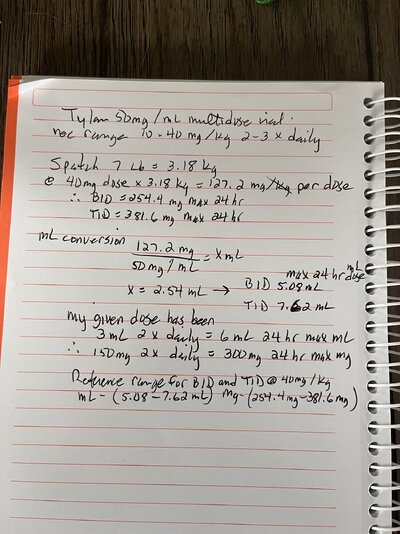 Tylan 50mg/mL multidose vial.
rec range 10-40 mg/kg 2-3 x daily
7 Lb = 3.18 kg
@ 40mg dose x 3.18 kg = 127.2 mg/kg per dose
∴ BID = 254.4 mg max 24 hr
TID = 381.6 mg max 24 hr
mL conversion 127.2 mg / 50 mg/mL = x mL
max 24 hr dose mL
x = 2.54 mL → BID 5.08 mL
TID 7.62 mL
my given dose has been
3mL 2x daily = 6 mL 24 hr max mL
∴ 150mg 2x daily = 300mg 24 hr max mg
Reference range for BID and TID @ 40mg/kg
mL - (5.08-7.62 mL) mg - (254.4mg-381.6mg)